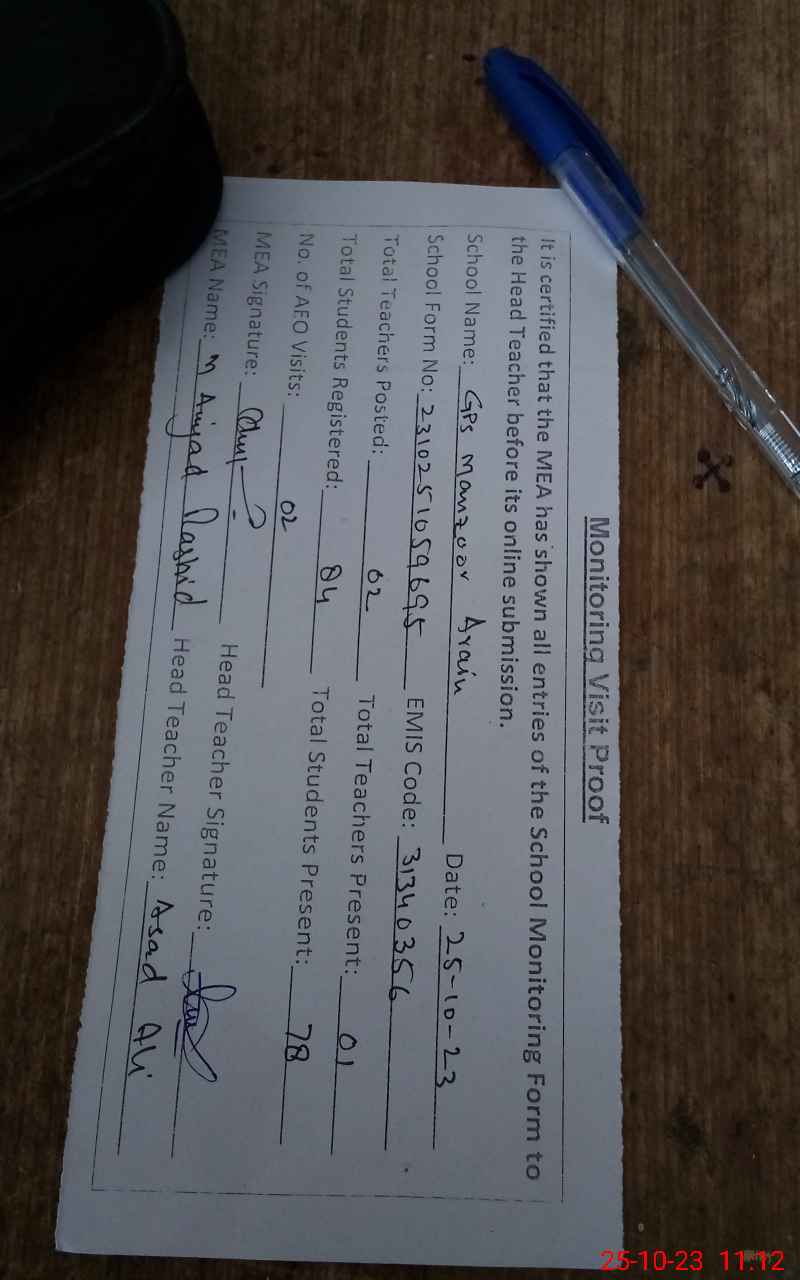 Monitoring Visit Proof
It is certified that the MEA has shown all entries of the School Monitoring Form to
the Head Teacher before its online submission.
School Name: GPS Manzoor Arain Date: 25-10-23
School Form No: 2310251059695 EMIS Code: 31340356
Total Teachers Posted: 02 Total Teachers Present: 01
Total Students Registered: 84 Total Students Present: 78
No. of AEO Visits: 02
MEA Signature: Head Teacher Signature:
MEA Name: M Amjad Rashid Head Teacher Name: Asad Ali
25-10-23 11:12